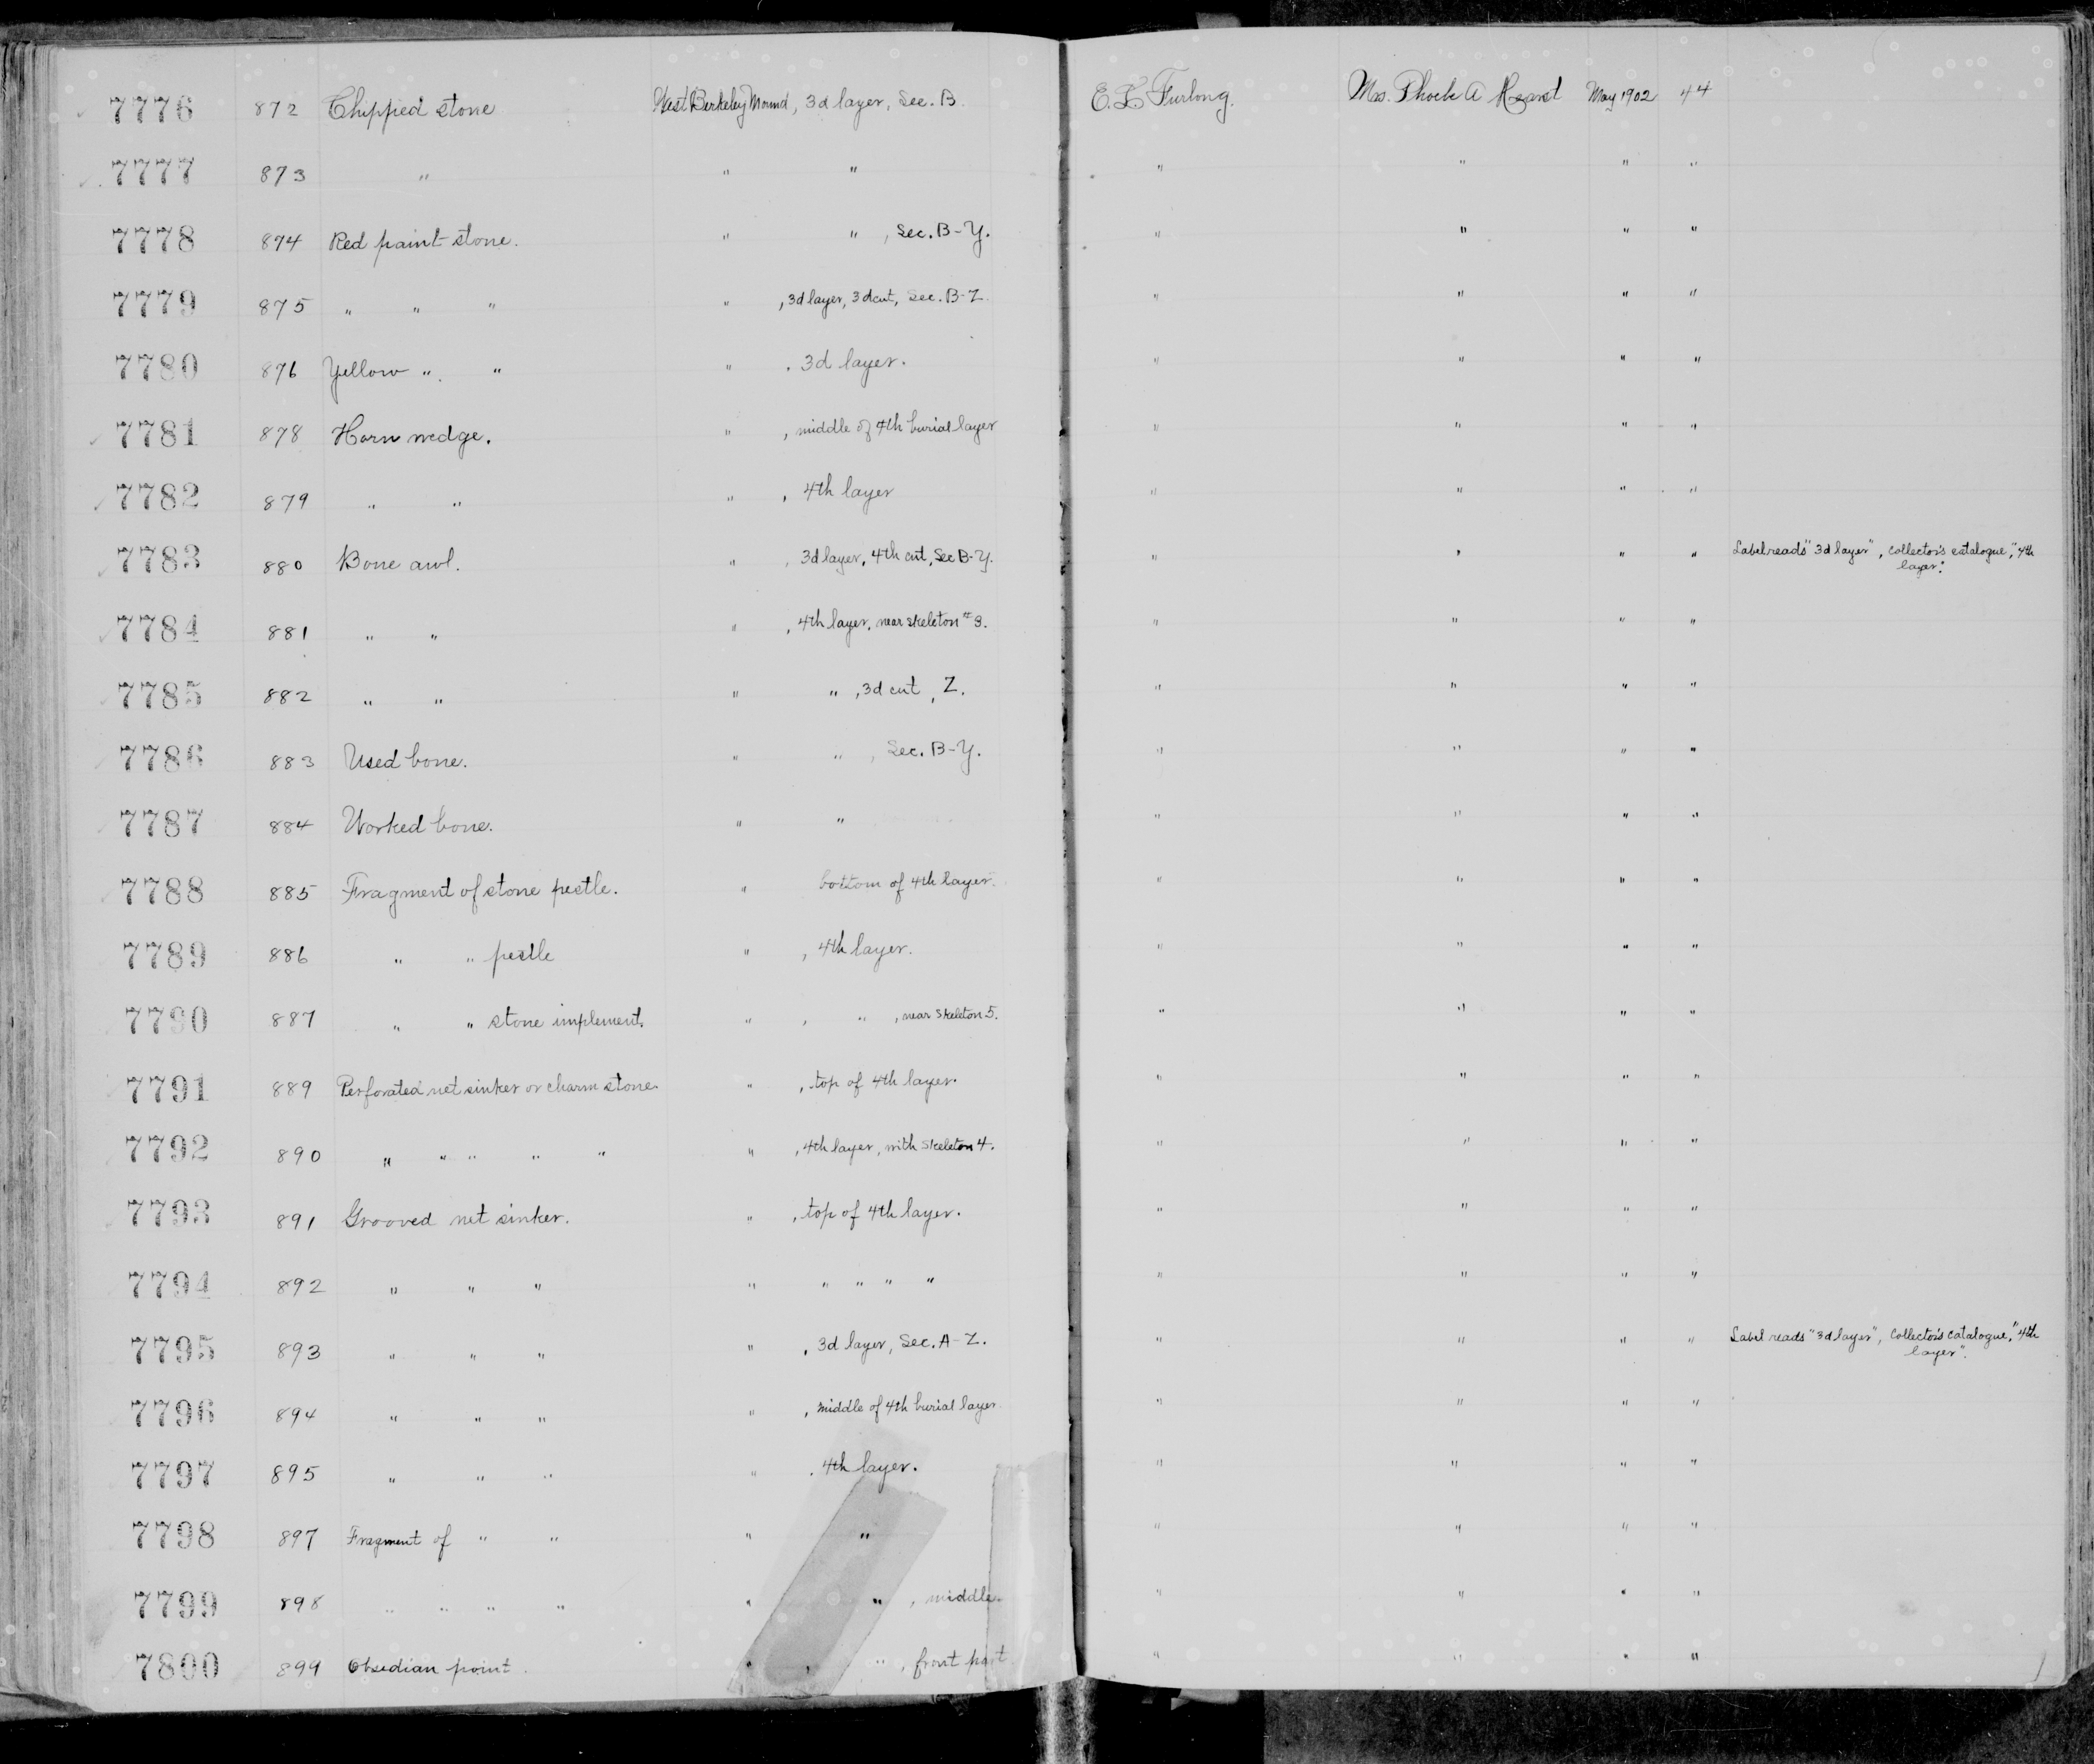 7776 872 Chipped stone West Berkeley Mound, 3d layer, Sec. B. E. L. Furlong. Mrs. Phoebe A Hearst May 1902 44
7777 873 " " " " " " "
7778 874 Red paint stone. " " , Sec. B-Y. " " " "
7779 875 " " " " , 3d layer, 3d cut, Sec. B-Z. " " " "
7780 876 Yellow " " " , 3d layer. " " " "
7781 878 Horn wedge. " , middle of 4th burial layer " " " "
7782 879 " " " , 4th layer " " " "
7783 880 Bone awl. " , 3d layer, 4th cut, Sec B-Y. " " " " Label reads "3d layer", collector's catalogue, "4th
layer".
7784 881 " " " , 4th layer, near skeleton #3. " " " "
7785 882 " " " " , 3d cut, Z. " " " "
7786 883 Used bone. " " , Sec. B-Y. " " " "
7787 884 Worked bone. " " " " " "
7788 885 Fragment of stone pestle. " bottom of 4th layer. " " " "
7789 886 " " pestle " , 4th layer. " " " "
7790 887 " " stone implement. " , " , near skeleton 5. " " " "
7791 889 Perforated net sinker or charm stone. " , top of 4th layer. " " " "
7792 890 " " " " " " , 4th layer, with skeleton 4. " " " "
7793 891 Grooved net sinker. " , top of 4th layer. " " " "
7794 892 " " " " " " " " " " " "
7795 893 " " " " , 3d layer, Sec. A-Z. " " " " Label reads "3d layer", Collector's catalogue, "4th
layer".
7796 894 " " " " , middle of 4th burial layer. " " " "
7797 895 " " " " , 4th layer. " " " "
7798 897 Fragment of " " " " " " " "
7799 898 " " " " " " , middle. " " " "
7800 899 Obsidian point. " , " , front part " " " "